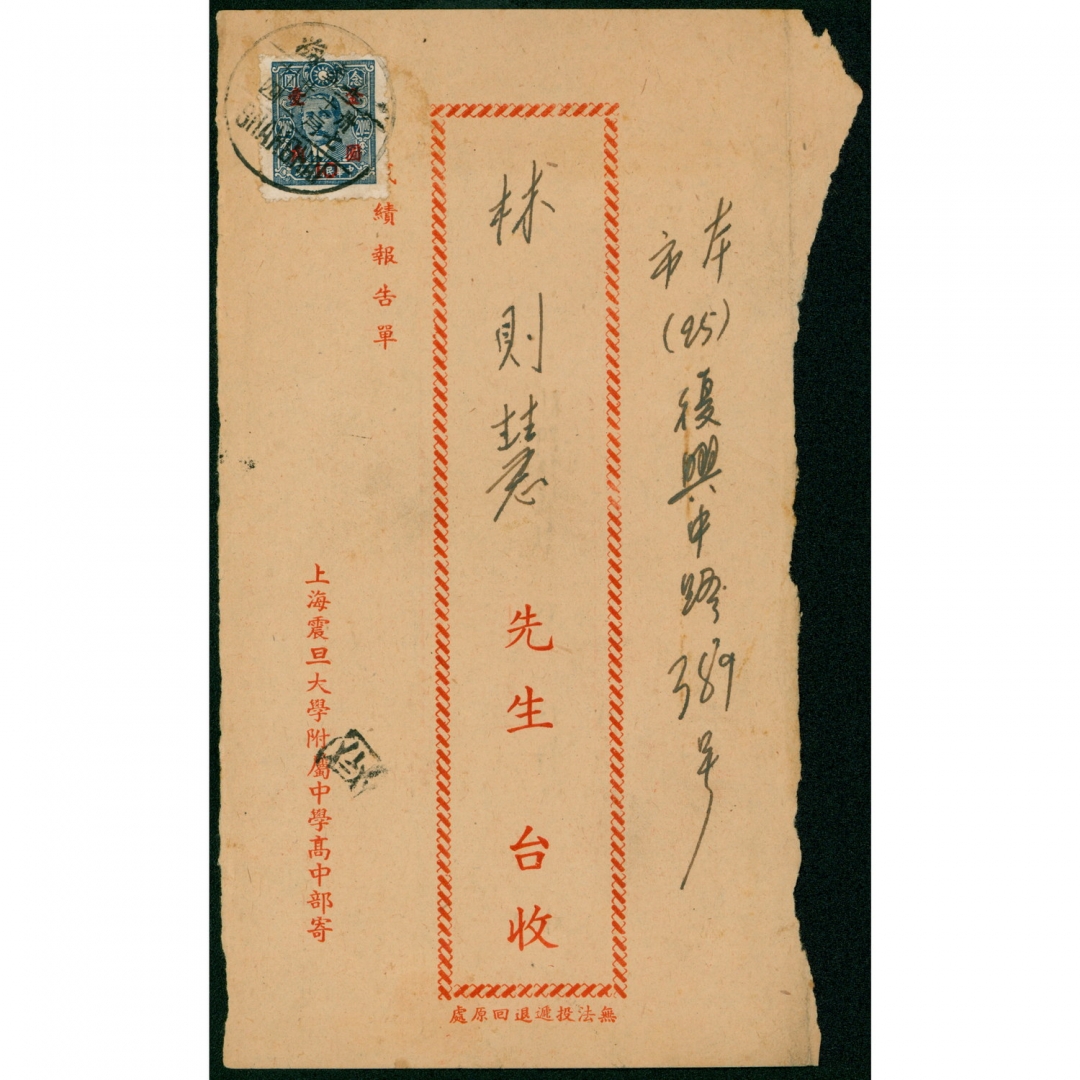 本市(25)復興中路389号
林則慧先生台收
績報告單
上海震旦大學附屬中學高中部寄
無法投遞退回原處
SHANGHAI